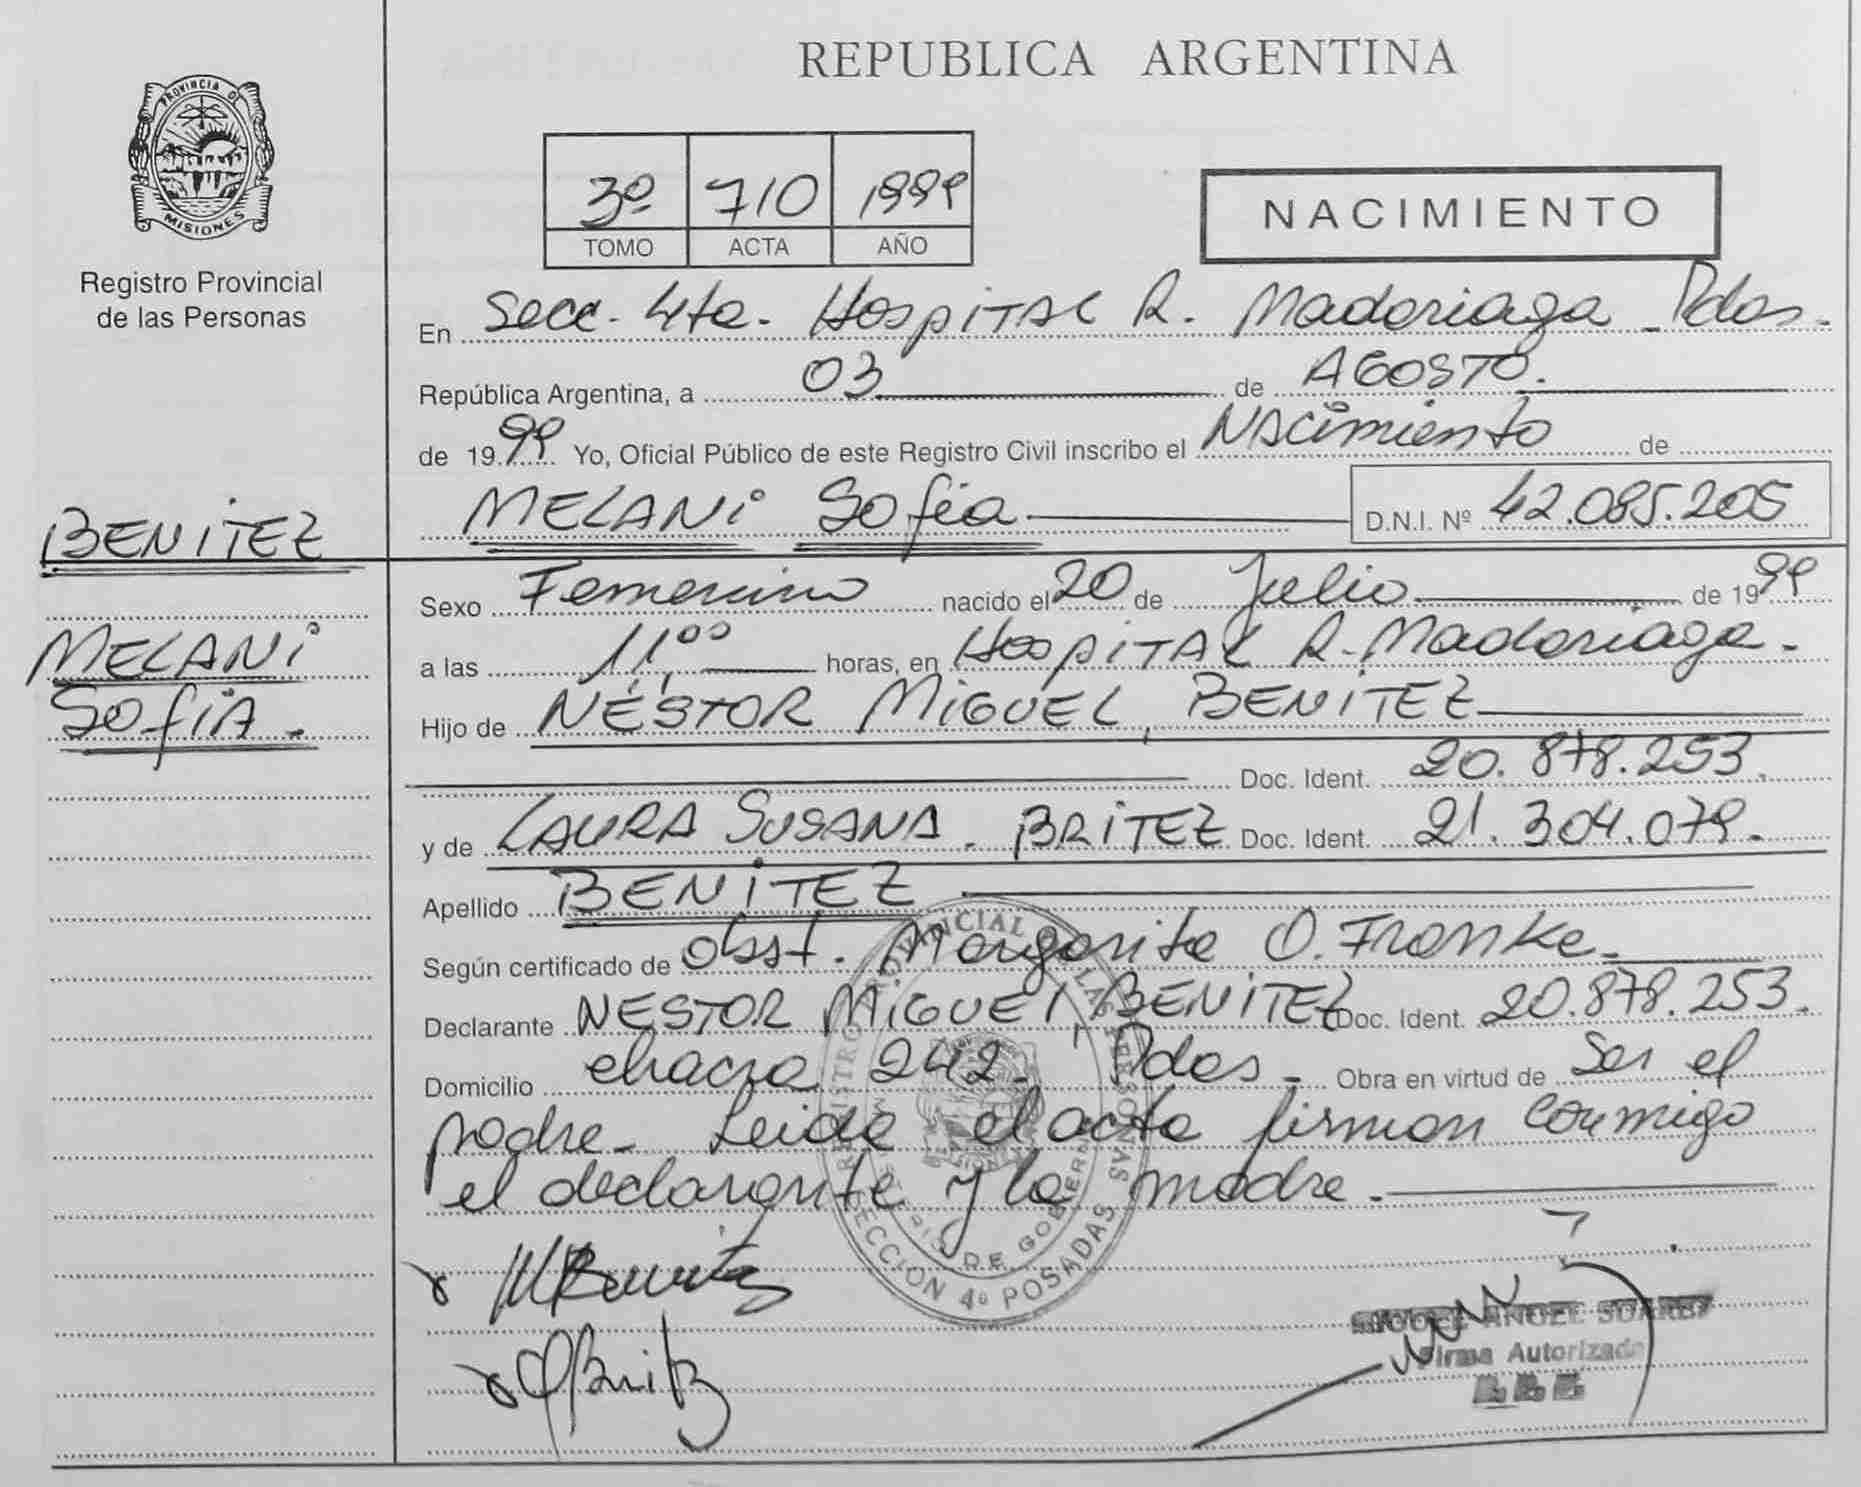 REPUBLICA ARGENTINA
PROVINCIA DE
MISIONES
Registro Provincial
de las Personas
3º 710 1999
TOMO ACTA AÑO
NACIMIENTO
En Secc. 4ta. Hospital R. Madariaga - Pdas.
República Argentina, a 03 de AGOSTO.
de 1999 Yo, Oficial Público de este Registro Civil inscribo el Nacimiento de
MELANi Sofia D.N.I. Nº 42.085.205
BENITEZ
MELANi
SofiA.-
Sexo Femenino nacido el 20 de Julio de 1999
a las 11,00 horas, en Hospital R. Madariaga.
Hijo de NÉSTOR MiGUEL BENITEZ
Doc. Ident. 20.878.253.
y de LAURA SUSANA. BRITEZ Doc. Ident. 21.304.079.
Apellido BENITEZ
Según certificado de Obst. Margarita O. Franke.
Declarante NESTOR MiGUEL BENITEZ Doc. Ident. 20.878.253.
Domicilio chacra 242. Pdas. Obra en virtud de Ser el
padre. Leida el acta firman conmigo
el declarante y la madre.
REGISTRO PROVINCIAL DE LAS PERSONAS
MINISTERIO DE GOBIERNO
SECCION 4º POSADAS
MIGUEL ANGEL SUAREZ
Firma Autorizada